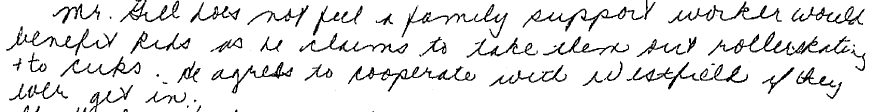 Mr. Gill does not feel a family support worker would
benefit kids as he claims to take them out rollerskating
+ to cubs. He agrees to cooperate with Westfield if they
ever get in.